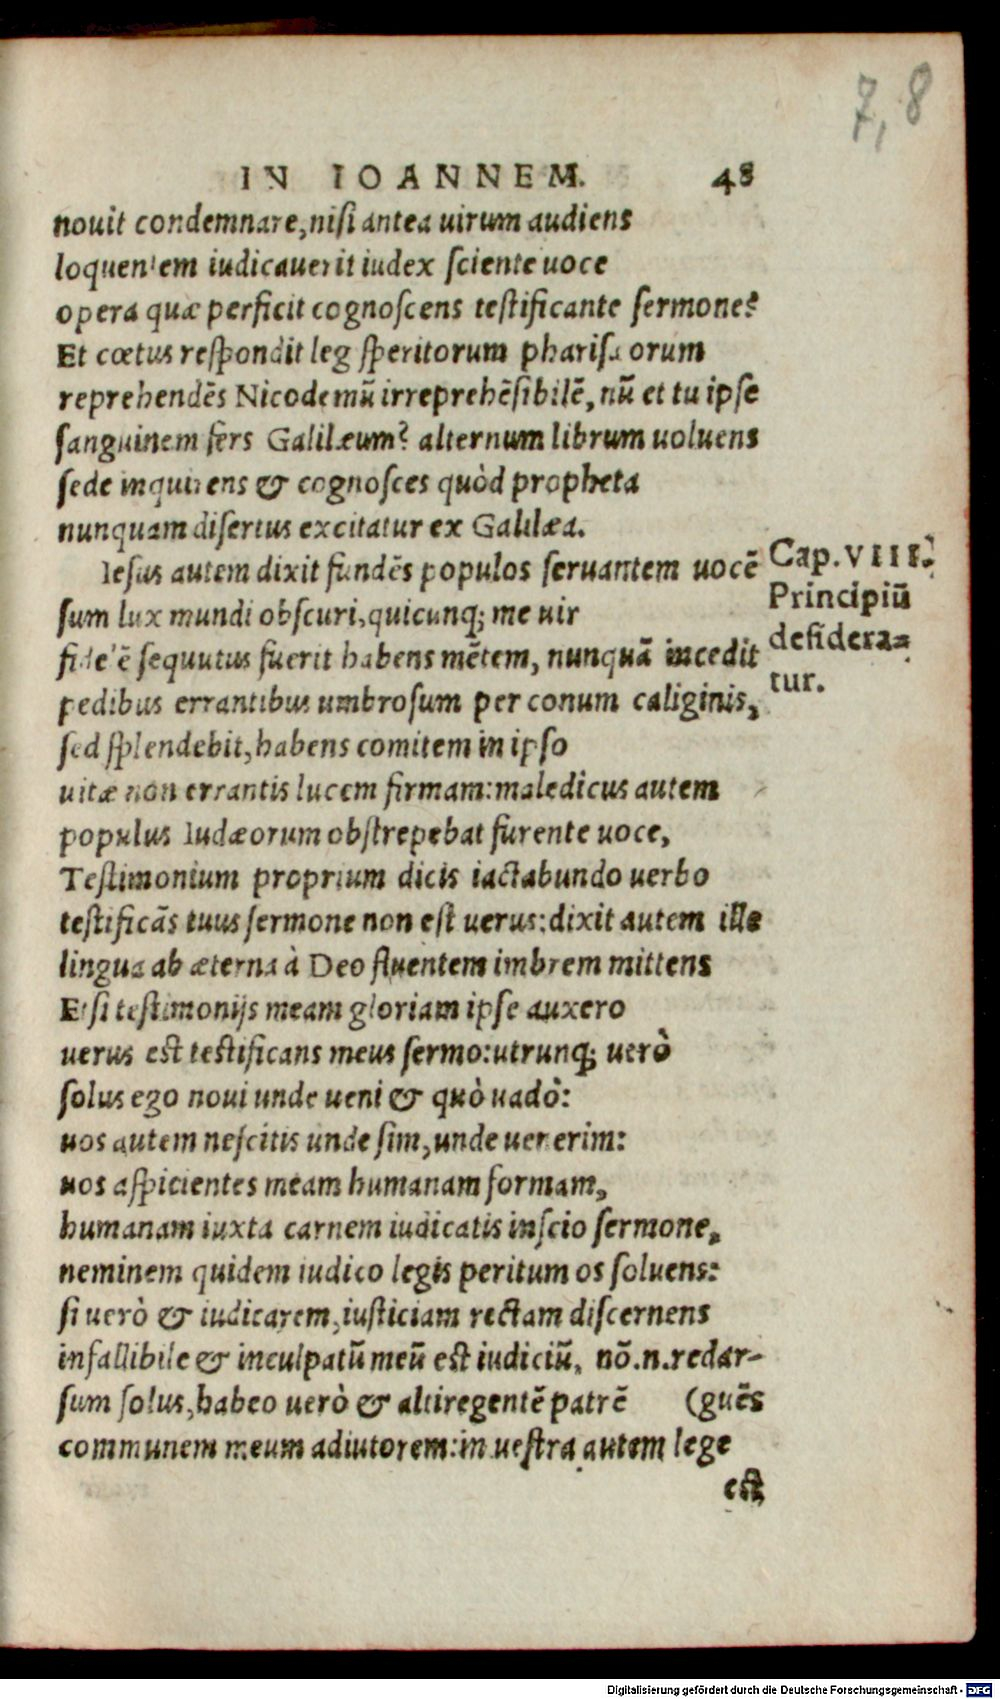 7, 8
IN IOANNEM. 48
nouit condemnare, nisi antea uirum audiens
loquentem iudicauerit iudex sciente uoce
opera quæ perficit cognoscens testificante sermone?
Et cœtus respondit legisperitorum pharisæorum
reprehendēs Nicodemū irreprehēsibilē, nū et tu ipse
sanguinem fers Galilæum? alternum librum uoluens
sede inquirens & cognosces quòd propheta
nunquam disertus excitatur ex Galilæa.
Iesus autem dixit fundēs populos seruantem uocē
Cap. VIII.
Principiū
desidera=
tur.
sum lux mundi obscuri, quicunq; me uir
fidelē sequutus fuerit habens mētem, nunquā incedit
pedibus errantibus umbrosum per conum caliginis,
sed splendebit, habens comitem in ipso
uitæ non errantis lucem firmam: maledicus autem
populus Iudæorum obstrepebat furente uoce,
Testimonium proprium dicis iactabundo uerbo
testificās tuus sermone non est uerus: dixit autem ille
lingua ab æterna à Deo fluentem imbrem mittens
Etsi testimonijs meam gloriam ipse auxero
uerus est testificans meus sermo: utrunq; uerò
solus ego noui unde ueni & quò uadò:
uos autem nescitis unde sim, unde uenerim:
uos aspicientes meam humanam formam,
humanam iuxta carnem iudicatis inscio sermone,
neminem quidem iudico legis peritum os soluens:
si uerò & iudicarem, iusticiam rectam discernens
infallibile & inculpatū meū est iudiciū, nō.n.redar-
sum solus, habeo uerò & altiregentē patrē (guēs
communem meum adiutorem: in uestra autem lege
est
Digitalisierung gefördert durch die Deutsche Forschungsgemeinschaft - DFG